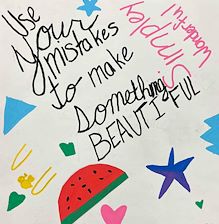 Use
Your
mistakes
to make
Something
BEAUTIFUL
Simpley